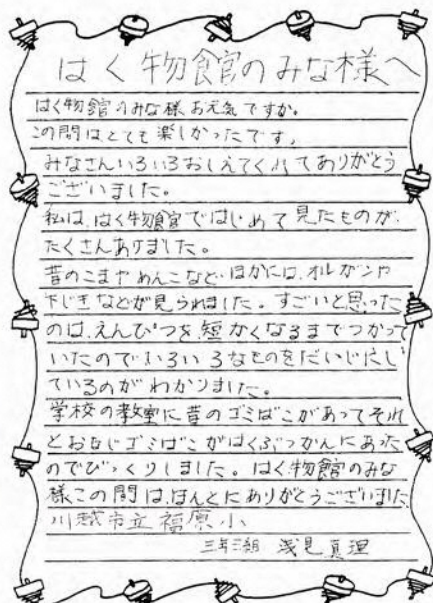 はく物館のみな様へ
はく物館のみな様お元気ですか。
この間はとても楽しかったです。
みなさんいろいろおしえてくれてありがとう
ございました。
私は、はく物館ではじめて見たものが、
たくさんありました。
昔のこまやめんこなど、ほかには、オルガンや
下じきなどが見られました。すごいと思った
のは、えんぴつを短かくなるまでつかって
いたのでいろいろなものをだいじにし
ているのがわかりました。
学校の教室に昔のゴミばこがあってそれ
とおなじゴミばこがはくぶつかんにあった
のでびっくりしました。はく物館のみな
様この間は、ほんとにありがとうございました
川越市立福原小
三年三組 浅見真理